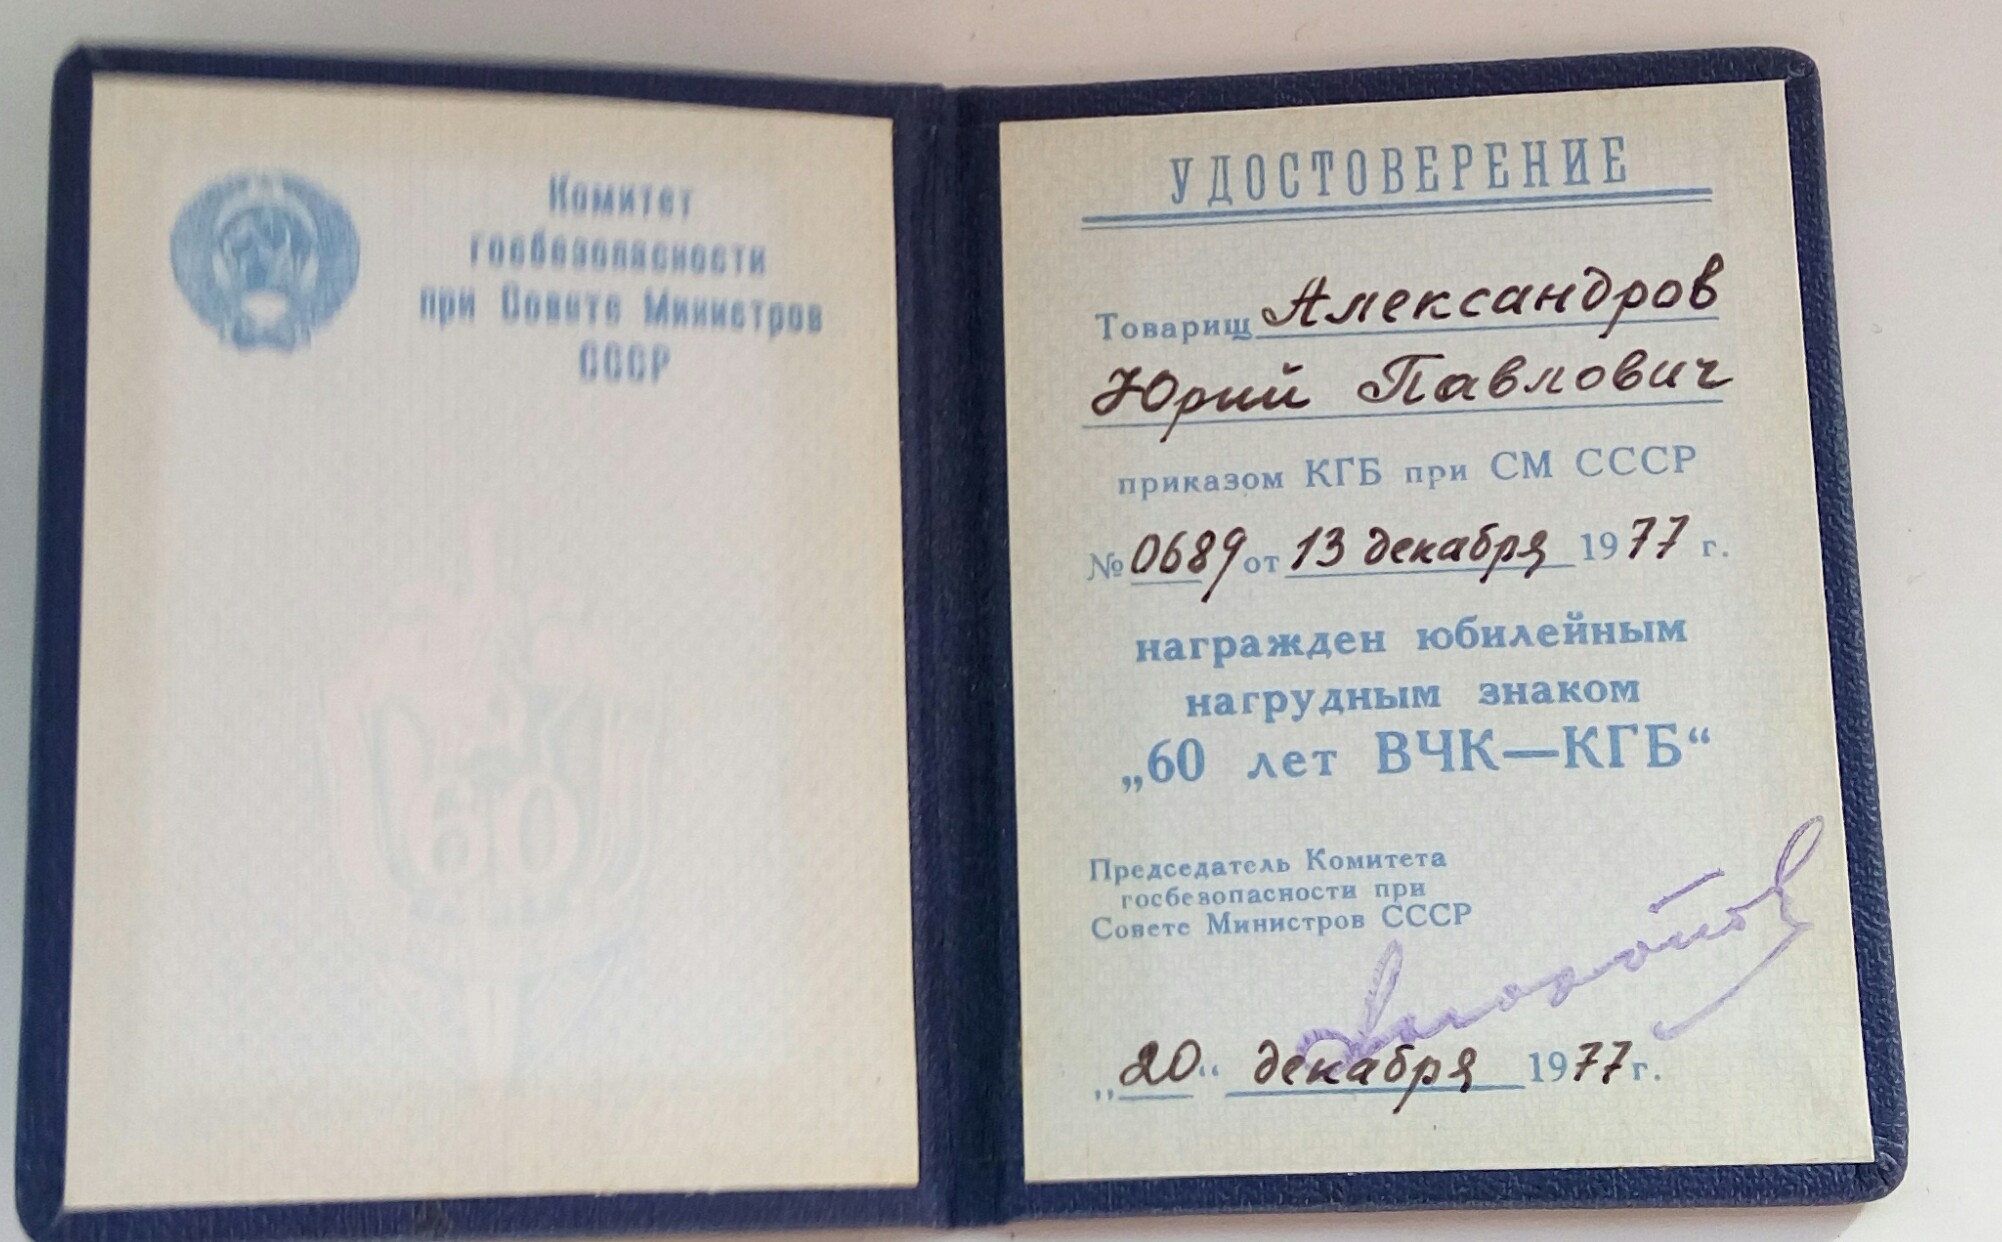 Комитет
госбезопасности
при Совете Министров
СССР
60
УДОСТОВЕРЕНИЕ
Товарищ Александров
Юрий Павлович
приказом КГБ при СМ СССР
№ 0689 от 13 декабря 1977 г.
награжден юбилейным
нагрудным знаком
„60 лет ВЧК—КГБ“
Председатель Комитета
госбезопасности при
Совете Министров СССР
„20“ декабря 1977 г.